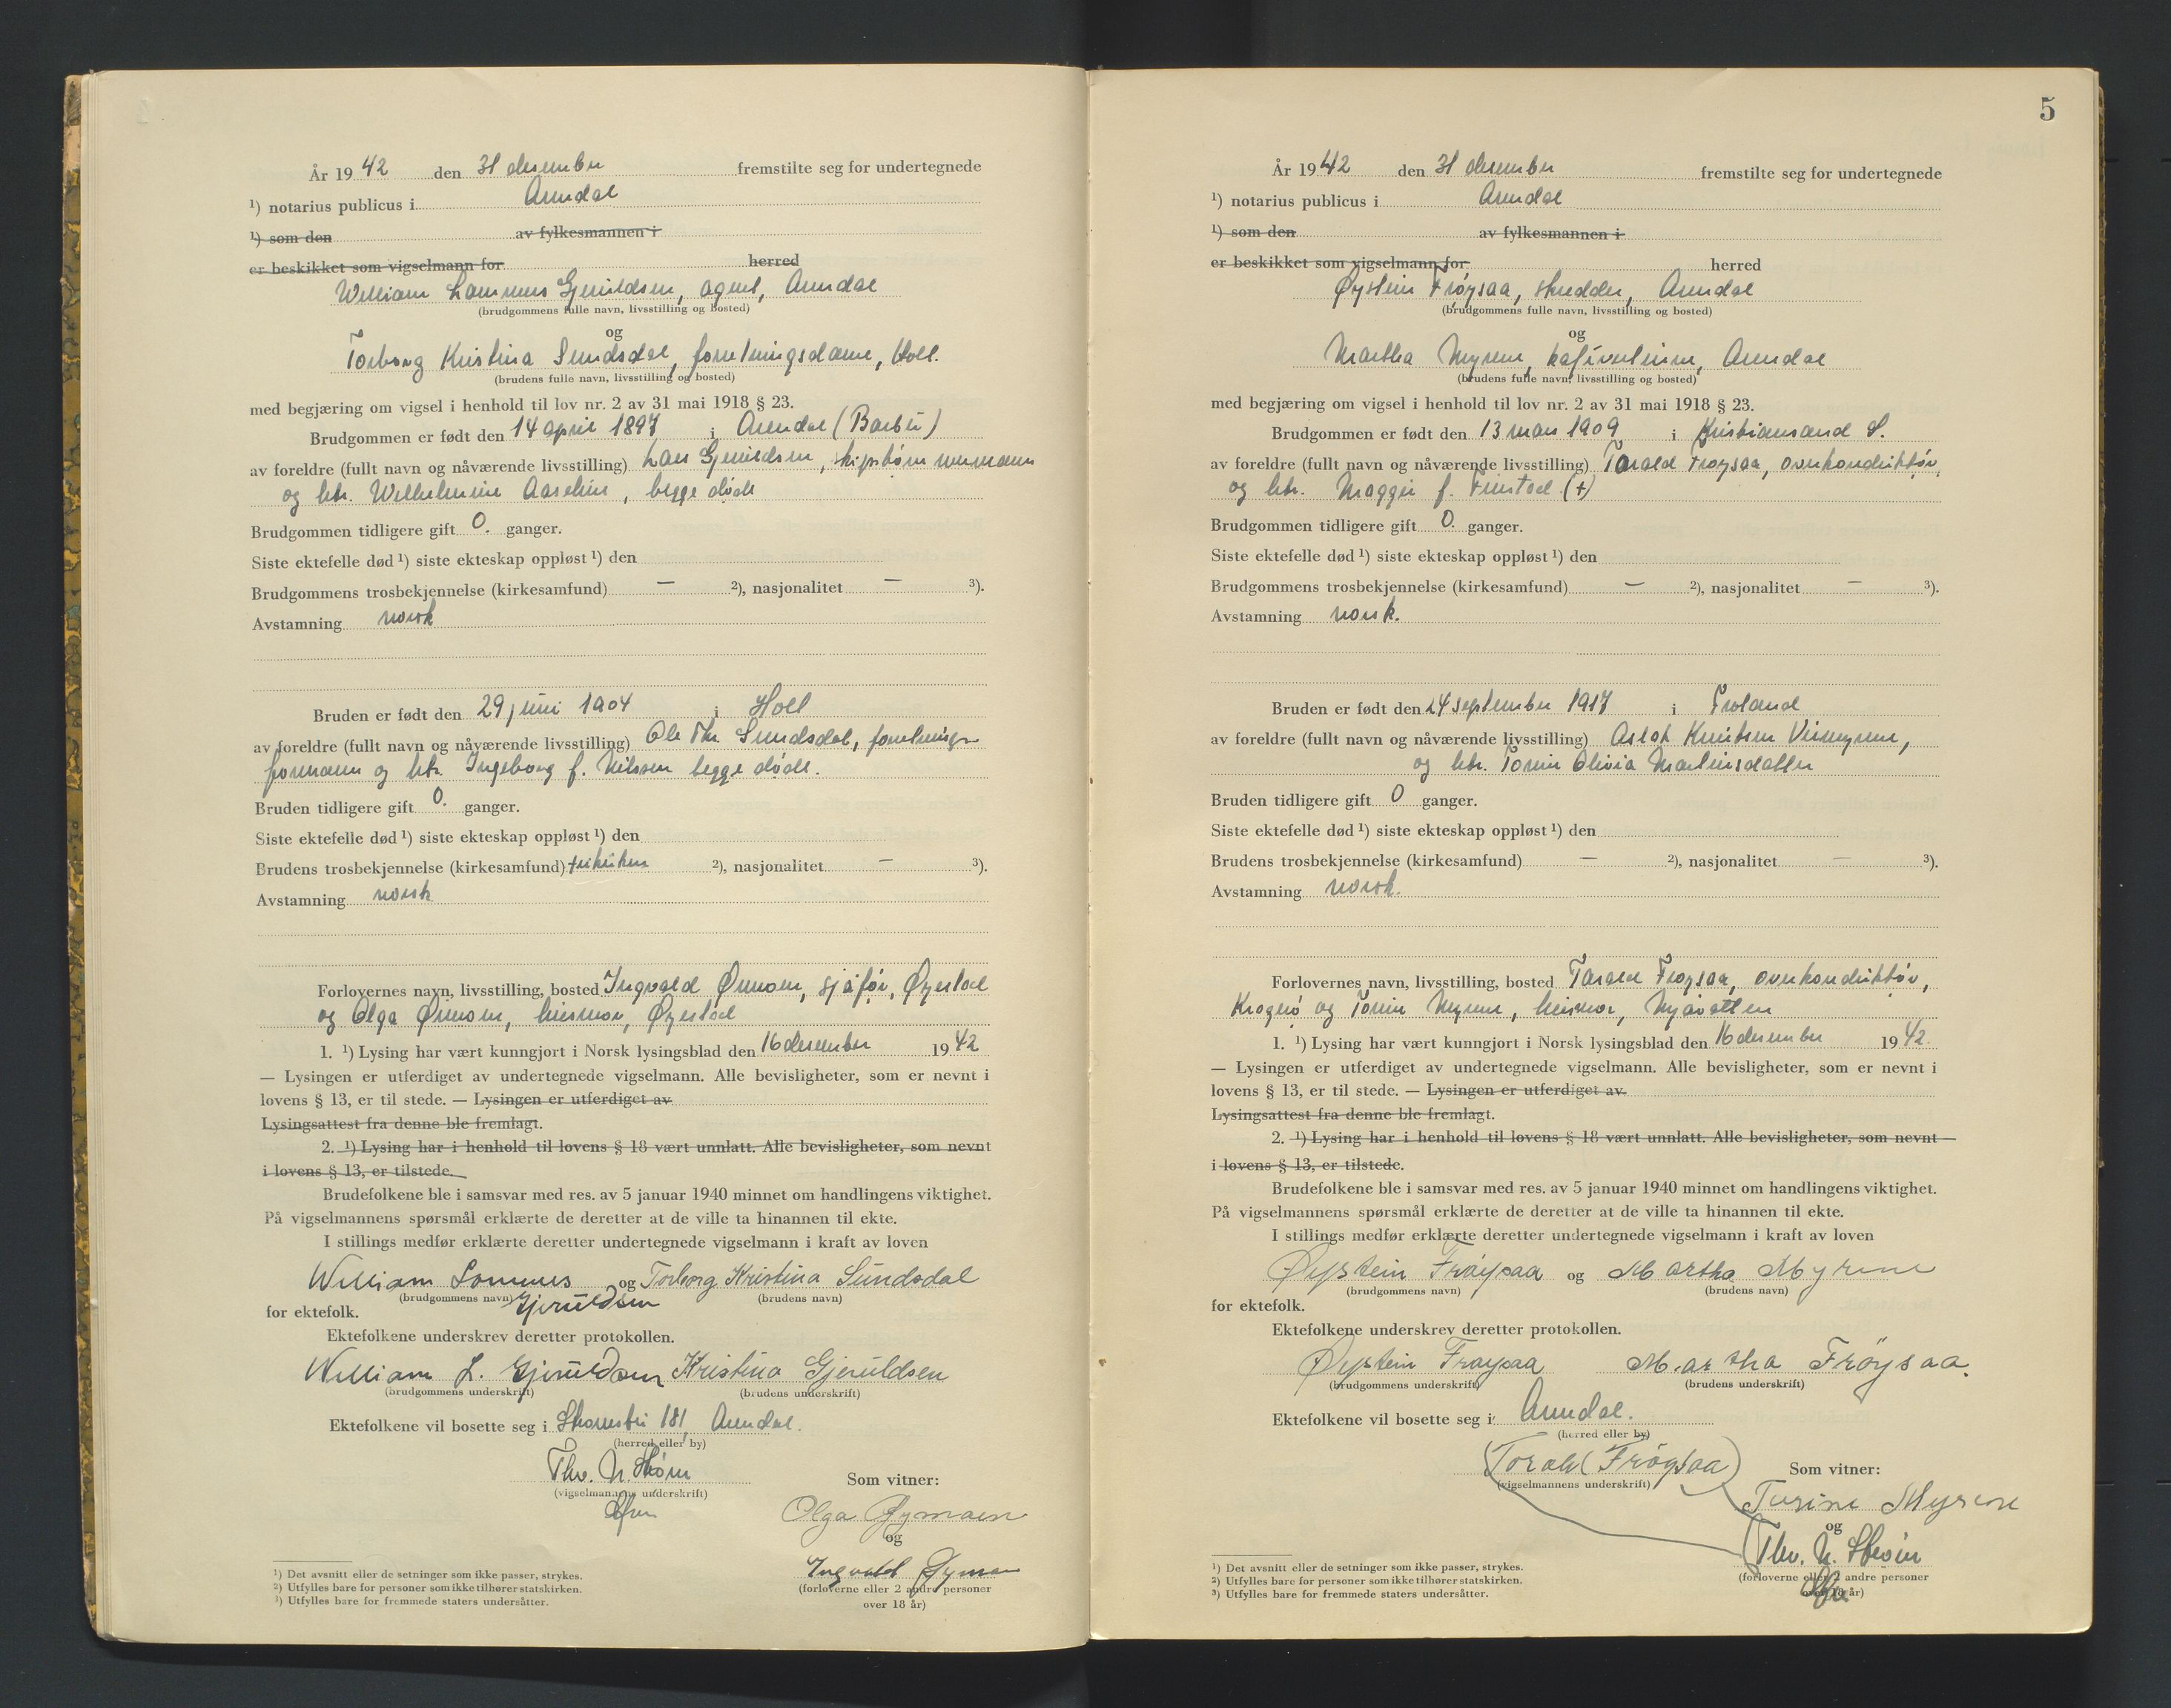 År 1942 den 31 desember fremstilte seg for undertegnede
¹) notarius publicus i Arendal
¹) som den av fylkesmannen i
er beskikket som vigselmann for herred
William Lammers Gjeruldsen, agent, Arendal
(brudgommens fulle navn, livsstilling og bosted)
og
Torborg Kristina Sundsdal, forretningsdame, Holt.
(brudens fulle navn, livsstilling og bosted)
med begjæring om vigsel i henhold til lov nr. 2 av 31 mai 1918 § 23.
Brudgommen er født den 14 april 1897 i Arendal (Barbu)
av foreldre (fullt navn og nåværende livsstilling) Lars Gjeruldsen, skipstømmermann
og htr. Wilhelmine Aaseline, begge døde
Brudgommen tidligere gift 0. ganger.
Siste ektefelle død ¹) siste ekteskap oppløst ¹) den
Brudgommens trosbekjennelse (kirkesamfund) — ²), nasjonalitet — ³).
Avstamning norsk
Bruden er født den 29 juni 1904 i Holt
av foreldre (fullt navn og nåværende livsstilling) Ole Thr. Sundsdal, forretnings-
formann og htr. Ingeborg f. Nilssen begge døde.
Bruden tidligere gift 0. ganger.
Siste ektefelle død ¹) siste ekteskap oppløst ¹) den
Brudens trosbekjennelse (kirkesamfund) frikirken ²), nasjonalitet — ³).
Avstamning norsk
Forlovernes navn, livsstilling, bosted Ingvald Øymoen, sjåfør, Øyestad
og Olga Øymoen, husmor, Øyestad
1. ¹) Lysing har vært kunngjort i Norsk lysingsblad den 16 desember 1942
— Lysingen er utferdiget av undertegnede vigselmann. Alle bevisligheter, som er nevnt i
lovens § 13, er til stede. — Lysingen er utferdiget av
Lysingsattest fra denne ble fremlagt.
2. ¹) Lysing har i henhold til lovens § 18 vært unnlatt. Alle bevisligheter, som nevnt
i lovens § 13, er tilstede.
Brudefolkene ble i samsvar med res. av 5 januar 1940 minnet om handlingens viktighet.
På vigselmannens spørsmål erklærte de deretter at de ville ta hinannen til ekte.
I stillings medfør erklærte deretter undertegnede vigselmann i kraft av loven
William Lammers og Torborg Kristina Sundsdal
(brudgommens navn) Gjeruldsen (brudens navn)
for ektefolk.
Ektefolkene underskrev deretter protokollen.
William L. Gjeruldsen Kristina Gjeruldsen
(brudgommens underskrift) (brudens underskrift)
Ektefolkene vil bosette seg i Strømsbu 181, Arendal.
(herred eller by)
Thv. N. Strøm
(vigselmannens underskrift) Som vitner:
Olga Øymoen
og
Ingvald Øymoen
(forloverne eller 2 andre personer
over 18 år)
¹) Det avsnitt eller de setninger som ikke passer, strykes.
²) Utfylles bare for personer som ikke tilhører statskirken.
³) Utfylles bare for fremmede staters undersåtter.
5
År 1942 den 31 desember fremstilte seg for undertegnede
¹) notarius publicus i Arendal
¹) som den av fylkesmannen i
er beskikket som vigselmann for herred
Øystein Frøysaa, skredder, Arendal
(brudgommens fulle navn, livsstilling og bosted)
og
Martha Myrene, kafévertinne, Arendal
(brudens fulle navn, livsstilling og bosted)
med begjæring om vigsel i henhold til lov nr. 2 av 31 mai 1918 § 23.
Brudgommen er født den 13 mars 1909 i Kristiansand S.
av foreldre (fullt navn og nåværende livsstilling) Torald Frøysaa, overkonduktør,
og htr. Maggie f. Finstad (+)
Brudgommen tidligere gift 0. ganger.
Siste ektefelle død ¹) siste ekteskap oppløst ¹) den
Brudgommens trosbekjennelse (kirkesamfund) — ²), nasjonalitet — ³).
Avstamning norsk.
Bruden er født den 24 september 1917 i Froland
av foreldre (fullt navn og nåværende livsstilling) Aslak Knutsen Veimyrene,
og htr. Torine Olivia Martinsdatter
Bruden tidligere gift 0 ganger.
Siste ektefelle død ¹) siste ekteskap oppløst ¹) den
Brudens trosbekjennelse (kirkesamfund) — ²), nasjonalitet — ³).
Avstamning norsk.
Forlovernes navn, livsstilling, bosted Torald Frøysaa, overkonduktør,
Kragerø og Torine Myrene, husmor, Mjåvatten
1. ¹) Lysing har vært kunngjort i Norsk lysingsblad den 16 desember 1942.
— Lysingen er utferdiget av undertegnede vigselmann. Alle bevisligheter, som er nevnt i
lovens § 13, er til stede. — Lysingen er utferdiget av
Lysingsattest fra denne ble fremlagt.
2. ¹) Lysing har i henhold til lovens § 18 vært unnlatt. Alle bevisligheter, som nevnt
i lovens § 13, er tilstede.
Brudefolkene ble i samsvar med res. av 5 januar 1940 minnet om handlingens viktighet.
På vigselmannens spørsmål erklærte de deretter at de ville ta hinannen til ekte.
I stillings medfør erklærte deretter undertegnede vigselmann i kraft av loven
Øystein Frøysaa og Martha Myrene
(brudgommens navn) (brudens navn)
for ektefolk.
Ektefolkene underskrev deretter protokollen.
Øystein Frøysaa Martha Frøysaa.
(brudgommens underskrift) (brudens underskrift)
Ektefolkene vil bosette seg i Arendal.
(herred eller by)
(Torald Frøysaa) Som vitner:
(vigselmannens underskrift)
Torine Myrene
og
Thv. N. Strøm
(forloverne eller 2 andre personer
over 18 år)
¹) Det avsnitt eller de setninger som ikke passer, strykes.
²) Utfylles bare for personer som ikke tilhører statskirken.
³) Utfylles bare for fremmede staters undersåtter.